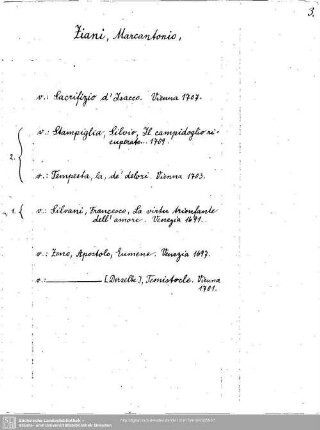 3.
Ziani, Marcantonio,
v.: Sacrifizio d'Isacco. Vienna 1707.
v.: Stampiglia, Silvio, Il campidoglio ri-
cuperato... 1709
2.
v.: Tempesta, la, de' dolori. Vienna 1703.
1.
v.: Silvani, Francesco, La virtu trionfante
dell'amore. Venezia 1691.
v.: Zeno, Apostolo, Eumene. Venezia 1697.
v.: (Derselbe), Temistocle. Vienna
1701.
Sächsische Landesbibliothek
Staats- und Universitätsbibliothek Dresden